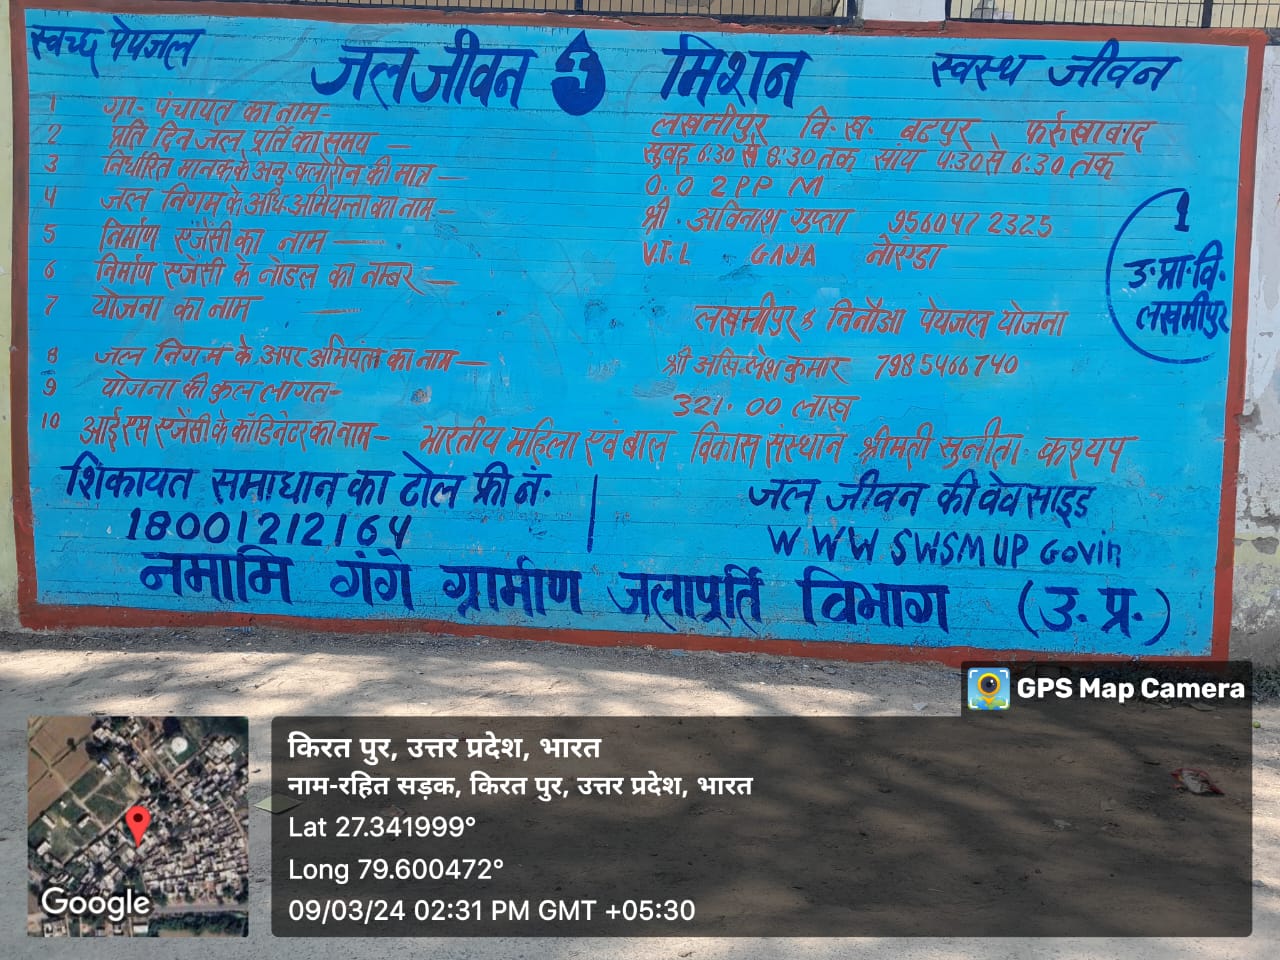 स्वच्छ पेयजल जल जीवन मिशन स्वस्थ जीवन
1 ग्रा. पंचायत का नाम- लखमीपुर वि. ख. बढपुर फर्रुखाबाद
2 प्रति दिन जल पूर्ति का समय - सुबह 6:30 से 8:30 तक सांय 4:30 से 6:30 तक
3 निर्धारित मानक के अनु. क्लोरीन की मात्र - 0.02 PPM
4 जल निगम के अधि. अभियन्ता का नाम - श्री. अविनाश गुप्ता 9560472325
5 निर्माण एजेंसी का नाम - V.T.L GAJA नोएडा
6 निर्माण एजेंसी के नोडल का नम्बर -
7 योजना का नाम - लखमीपुर & निनौआ पेयजल योजना
8 जल निगम के अपर अभियंता का नाम - श्री अखिलेश कुमार 7985466740
9 योजना की कुल लागत- 321.00 लाख
10 आई एस एजेंसी के कॉडिनेटर का नाम- भारतीय महिला एवं बाल विकास संस्थान श्रीमती सुनीता कश्यप
1
उ.प्रा.वि.
लखमीपुर
शिकायत समाधान का टोल फ्री नं.
18001212164
जल जीवन की वेव साइड
WWW SWSMUP Govin
नमामि गंगे ग्रामीण जलापूर्ति विभाग (उ. प्र.)
GPS Map Camera
किरत पुर, उत्तर प्रदेश, भारत
नाम-रहित सड़क, किरत पुर, उत्तर प्रदेश, भारत
Lat 27.341999°
Long 79.600472°
09/03/24 02:31 PM GMT +05:30
Google